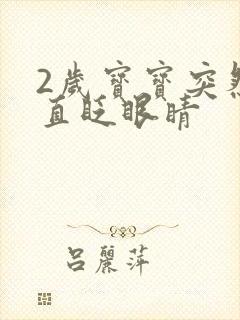 2歲寶寶突然
直眨眼睛
呂麗萍